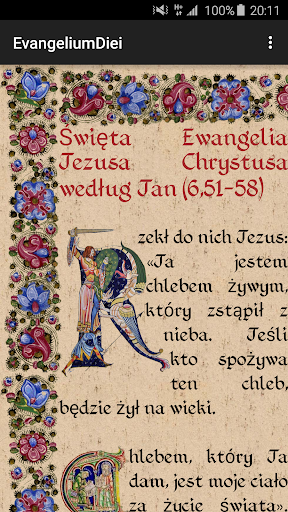 100% 20:11
EvangeliumDiei
Święta Ewangelia
Jezusa Chrystusa
według Jan (6,51-58)
Rzekł do nich Jezus:
«Ja jestem
chlebem żywym,
który zstąpił z
nieba. Jeśli
kto spożywa
ten chleb,
będzie żył na wieki.
Chlebem, który Ja
dam, jest moje ciało
za życie świata»,